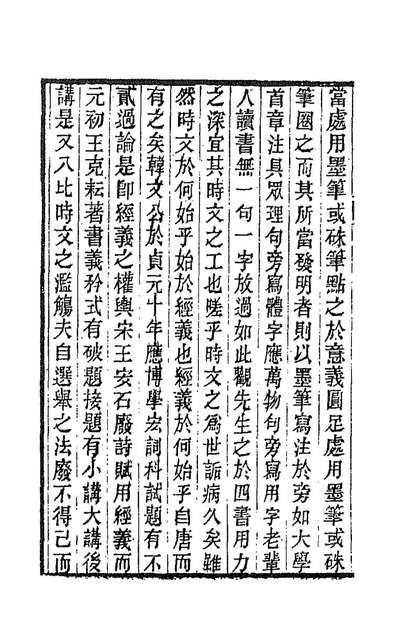 當處用墨筆或硃筆點之於意義圓足處用墨筆或硃
筆圈之而其所當發明者則以墨筆寫注於旁如大學
首章注具眾理句旁寫體字應萬物句旁寫用字老輩
人讀書無一句一字放過如此觀先生之於四書用力
之深宜其時文之工也嗟乎時文之為世詬病久矣雖
然時文於何始乎始於經義也經義於何始乎自唐而
有之矣韓文公於貞元十年應博學宏詞科試題有不
貳過論是即經義之權輿宋王安石廢詩賦用經義而
元初王克耘著書義矜式有破題接題有小講大講後
講是又八比時文之濫觴夫自選舉之法廢不得已而